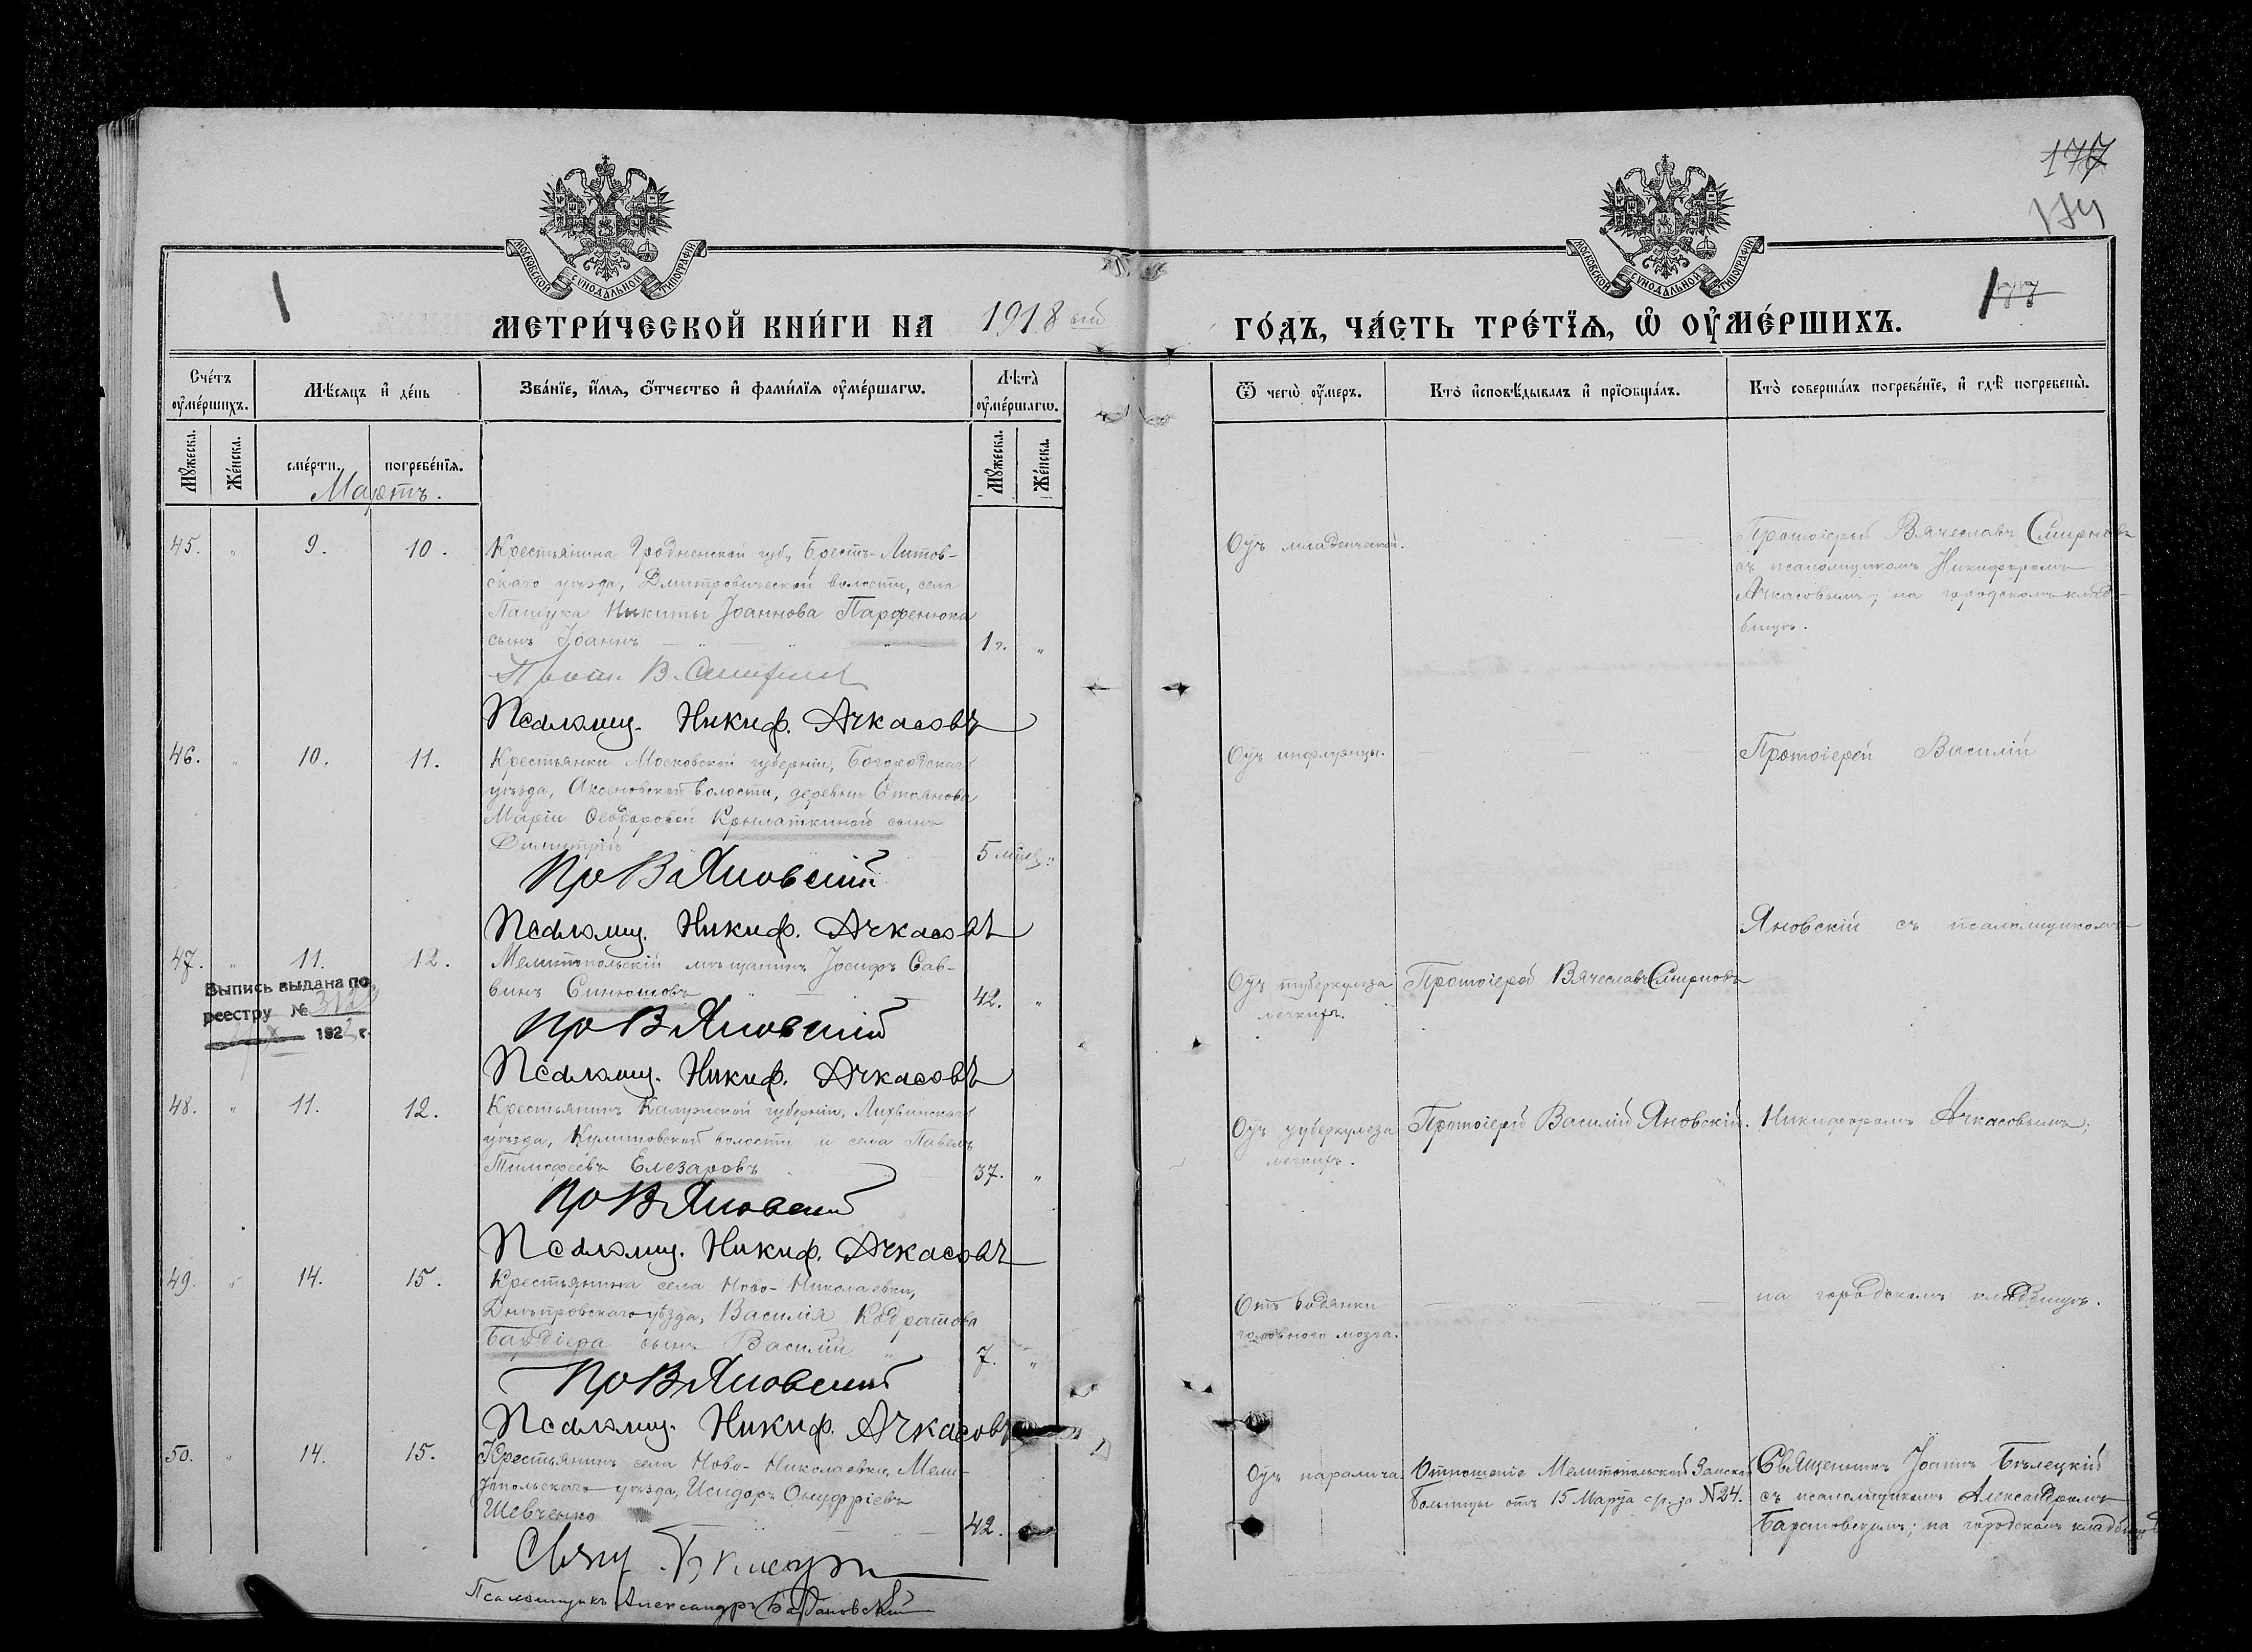 177
174
МОСКОВСКОЙ СѴНОДАЛЬНОЙ ТИПОГРАФІИ
МОСКОВСКОЙ СѴНОДАЛЬНОЙ ТИПОГРАФІИ
177
МЕТРИ́ЧЕСКОЙ КНИ́ГИ НА 1918 ый ГО́ДЪ, ЧА́СТЬ ТРЕ́ТЇѦ, Ѡ҆ ОУ҆МЕ́РШИХЪ.
Сче́тъ оу҆ме́ршихъ.
Мѣ́сяцъ и҆ де́нь
Зва́нїе, и҆́мѧ, ѻ҆́тчество и҆ фами́лїѧ оу҆ме́ршагѡ.
Лѣ́та̀ оу҆ме́ршагѡ.
Ѿ чегѡ̀ оу҆́меръ.
Кто̀ и҆сповѣ́дывалъ и҆ прїѻбща́лъ.
Кто̀ соверша́лъ погребе́нїе, и҆ гдѣ̀ погребены̀.
Мꙋ́жеска.
Же́нска.
сме́рти.
погребе́нїѧ.
Мꙋ́жеска.
Же́нска.
Мартъ.
45. " 9. 10.
Крестьянина Гродненской губ., Брестъ-Литов-
скаго уѣзда, Дмитровической волости, села
Никиты Іоаннова Парфенюка
сынъ Іоаннъ — " — " — " 1 г. "
Отъ младенческой.
Протоіерей Вячеславъ Смирновъ
съ псаломщикомъ Никифоромъ
Ачкасовымъ; на городскомъ клад-
бищѣ.
Прот. В. Смирнов
Псаломщ. Никиф. Ачкасовъ
46. " 10. 11.
Крестьянки Московской губерніи, Богородскаго
уѣзда, Аксеновской волости, деревни Стоянова
Маріи Ѳеодоровой Крылаткиной сынъ
Димитрій 5 мѣсяц. "
Отъ инфлуэнцы.
Протоіерей Василій
Пр В Яновскій
Псаломщ. Никиф. Ачкасовъ
Яновскій съ псаломщикомъ
47. " 11. 12.
Мелитопольскій мѣщанинъ Іосифъ Сав-
винъ Синюшовъ 42. "
Отъ туберкулеза
легкихъ.
Протоіерей Вячеславъ Смирновъ
Выпись выдана по
реестру №
192 г.
Пр В Яновскій
Псаломщ. Никиф. Ачкасовъ
48. " 11. 12.
Крестьянинъ Калужской губерніи, Лихвинскаго
уѣзда, волости и села Павелъ
Тимофеевъ Елезаровъ 37. "
Отъ туберкулеза
легкихъ.
Протоіерей Василій Яновскій.
Никифоромъ Ачкасовымъ;
Пр В Яновскій
Псаломщ. Никиф. Ачкасовъ
49. " 14. 15.
Крестьянина села Ново-Николаевки,
Днѣпровскаго уѣзда, Василія Кодратова
сынъ Василій 7. "
Отъ водянки
головного мозга.
на городскомъ кладбищѣ.
Пр В Яновскій
Псаломщ. Никиф. Ачкасовъ
50. " 14. 15.
Крестьянинъ села Ново-Николаевки, Мели-
топольскаго уѣзда, Исидоръ Онуфріевъ
Шевченко 42.
Отъ паралича.
Отношеніе Мелитопольской Земской
Больницы отъ 15 Марта с/г. за № 24.
Священникъ Іоаннъ Бѣлецкій
съ псаломщикомъ Александромъ
Барановскимъ; на городскомъ кладбищѣ
Свящ. І Бѣлецкій
Псаломщикъ Александръ Барановскій